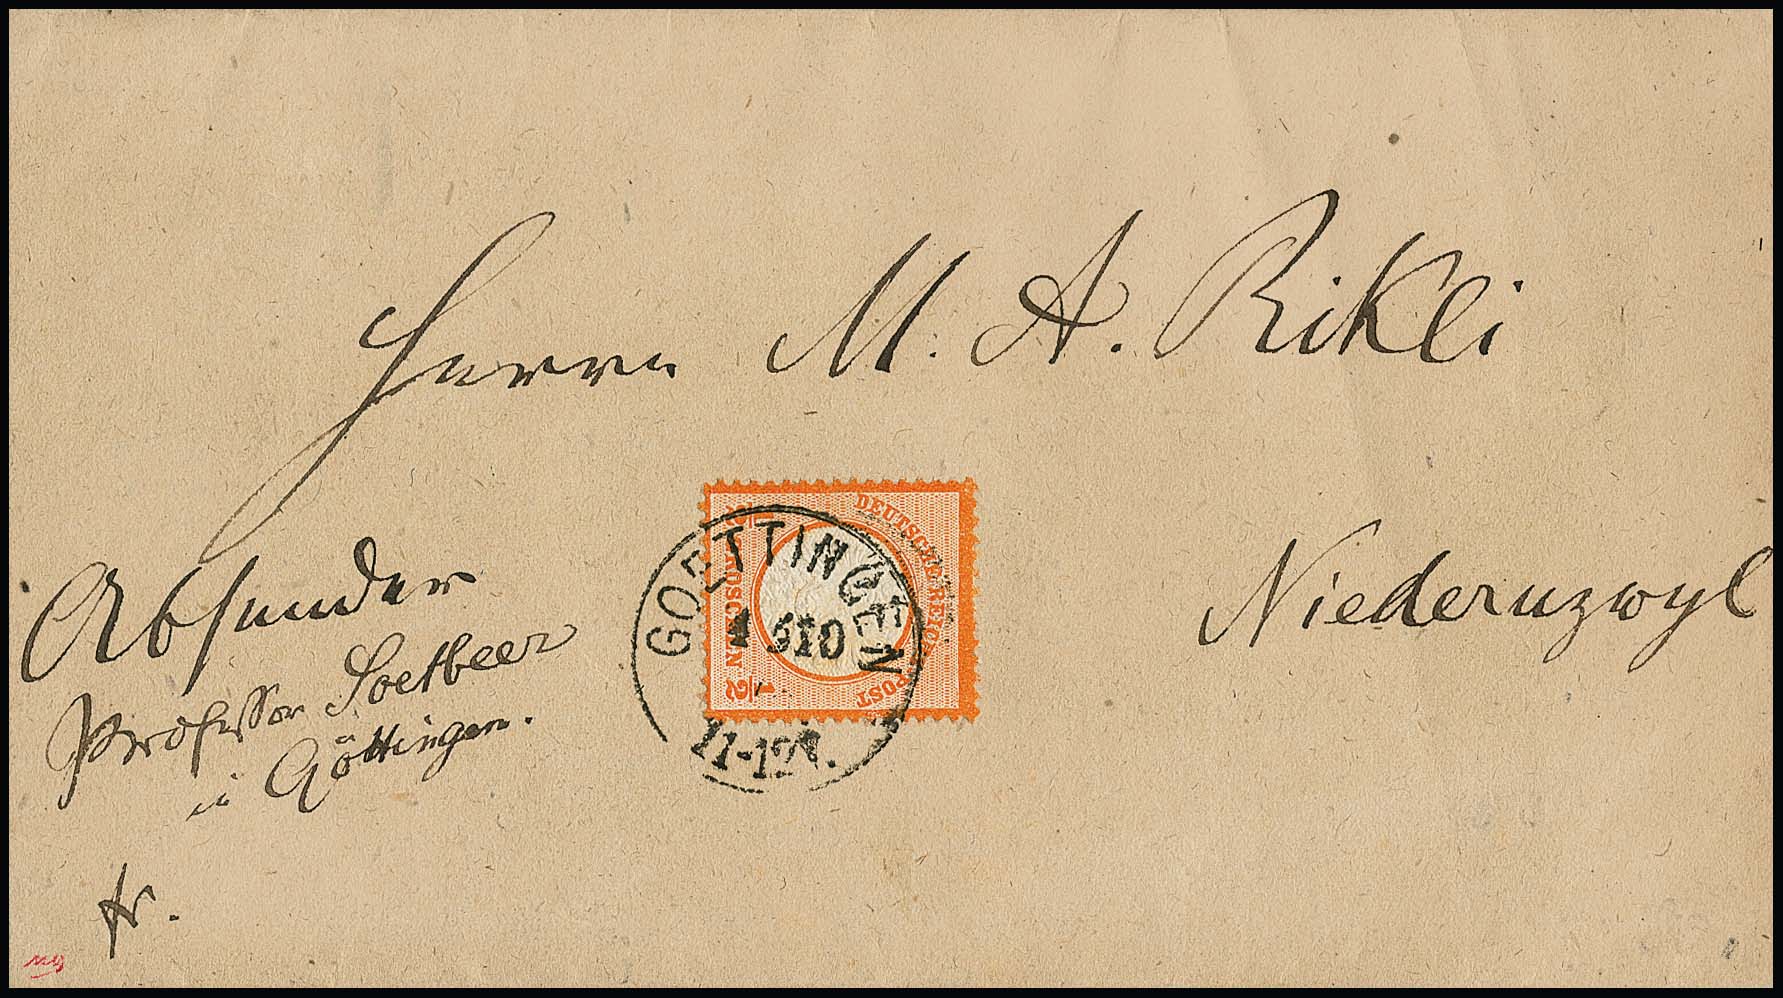 Herrn M. A. Rikli
Niedernzwyl
Absender
Professor Soetbeer
in Göttingen.
fr.
DEUTSCHE REICHS POST
1/2 GROSCHEN 1/2
GOETTINGEN
10
11-12